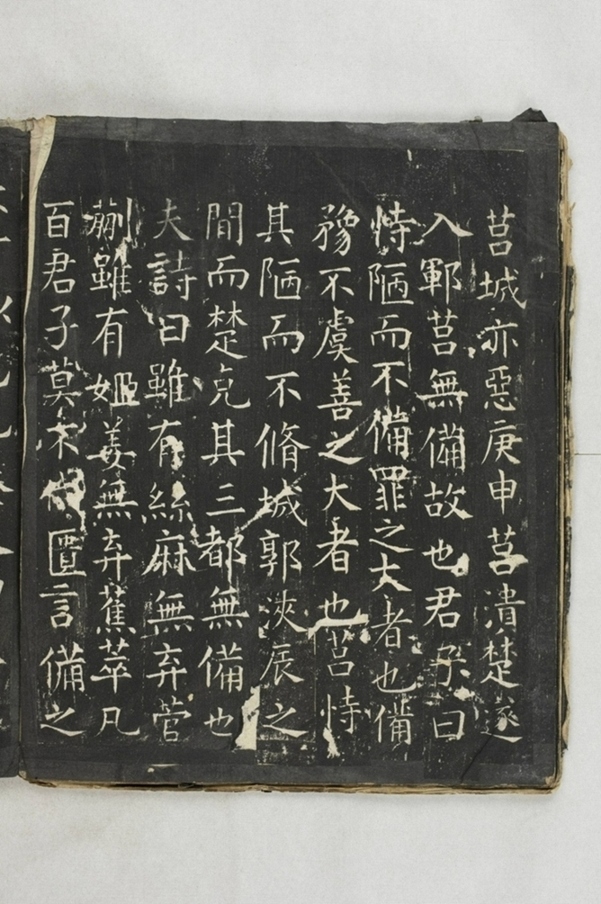 莒城亦惡庚申莒潰楚遂
入鄆莒無備故也君子曰
恃陋而不備罪之大者也備
豫不虞善之大者也莒恃
其陋而不脩城郭浹辰之
間而楚克其三都無備也
夫詩曰雖有絲麻無弃菅
蒯雖有姬姜無弃蕉萃凡
百君子莫不代匱言備之